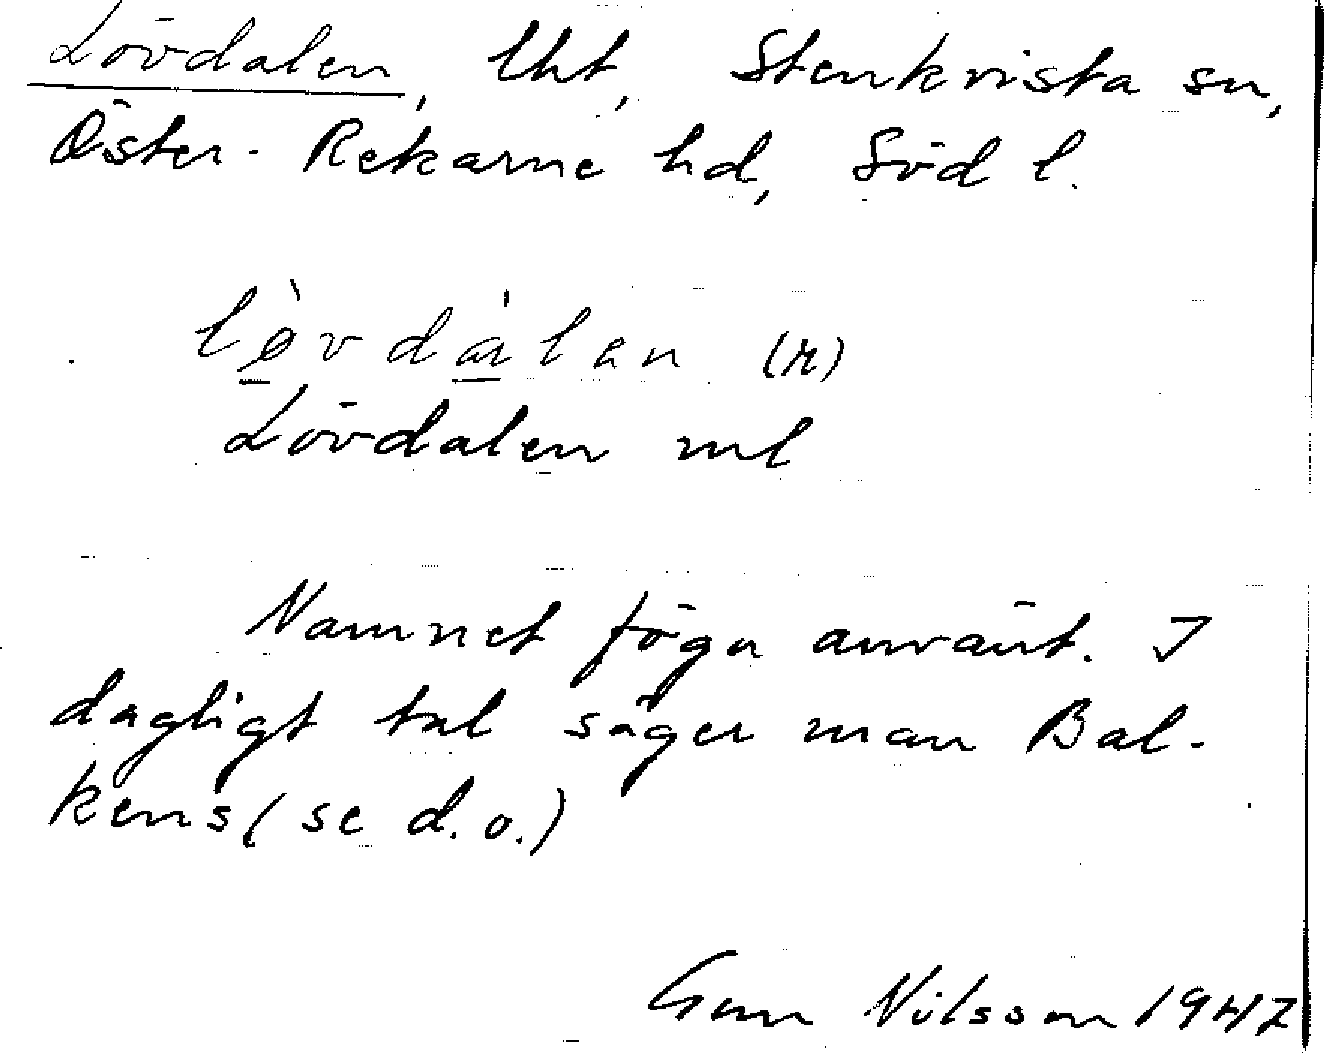 Lövdalen, lht, Stenkvista sn,
Öster-Rekarne hd, Söd l.
lø̀vdàlen (n)
Lövdalen ml
Namnet föga använt. I
dagligt tal säger man Bal-
kens (se d.o.)
Gun Nilsson 1947